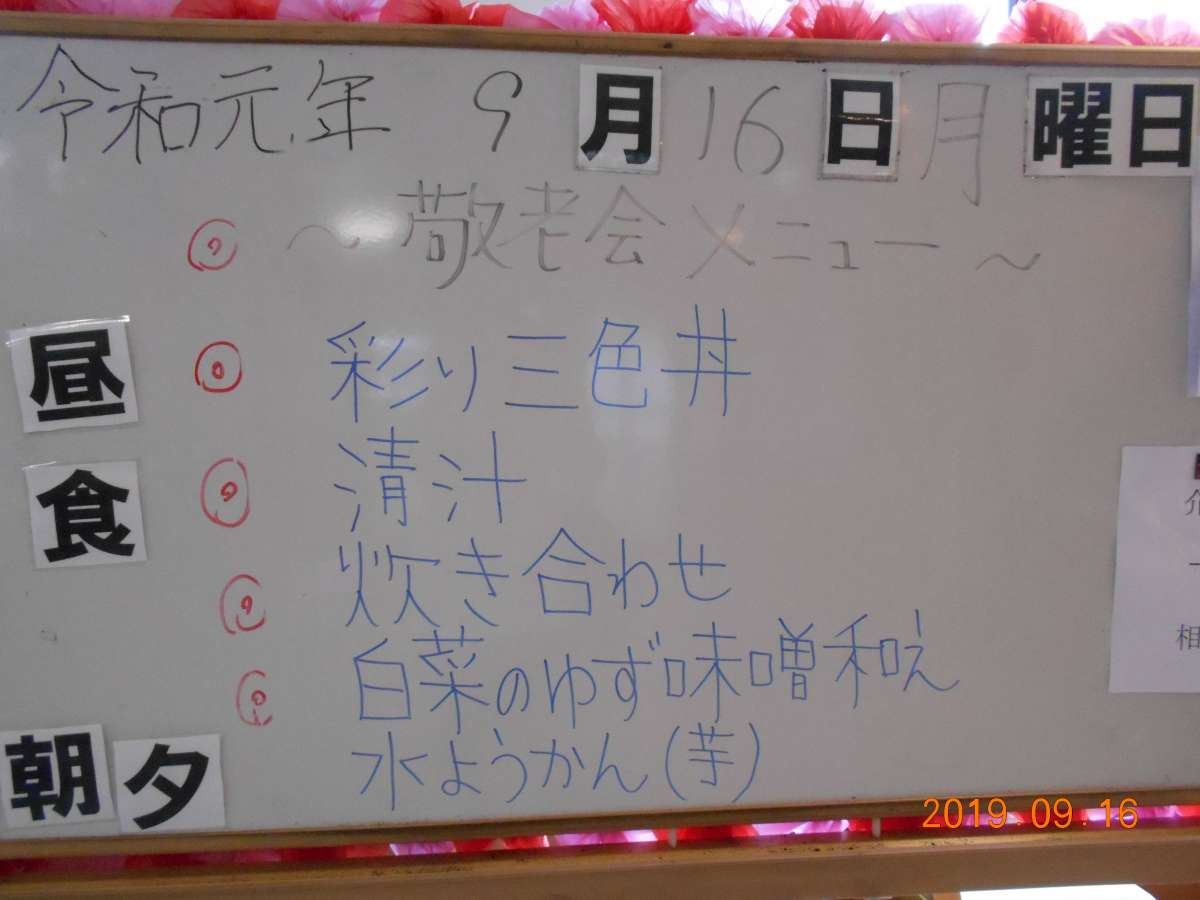 令和元年 9月16日月曜日
～敬老会メニュー～
昼食
彩り三色丼
清汁
炊き合わせ
白菜のゆず味噌和え
水ようかん(芋)
朝夕
相
2019.09.16